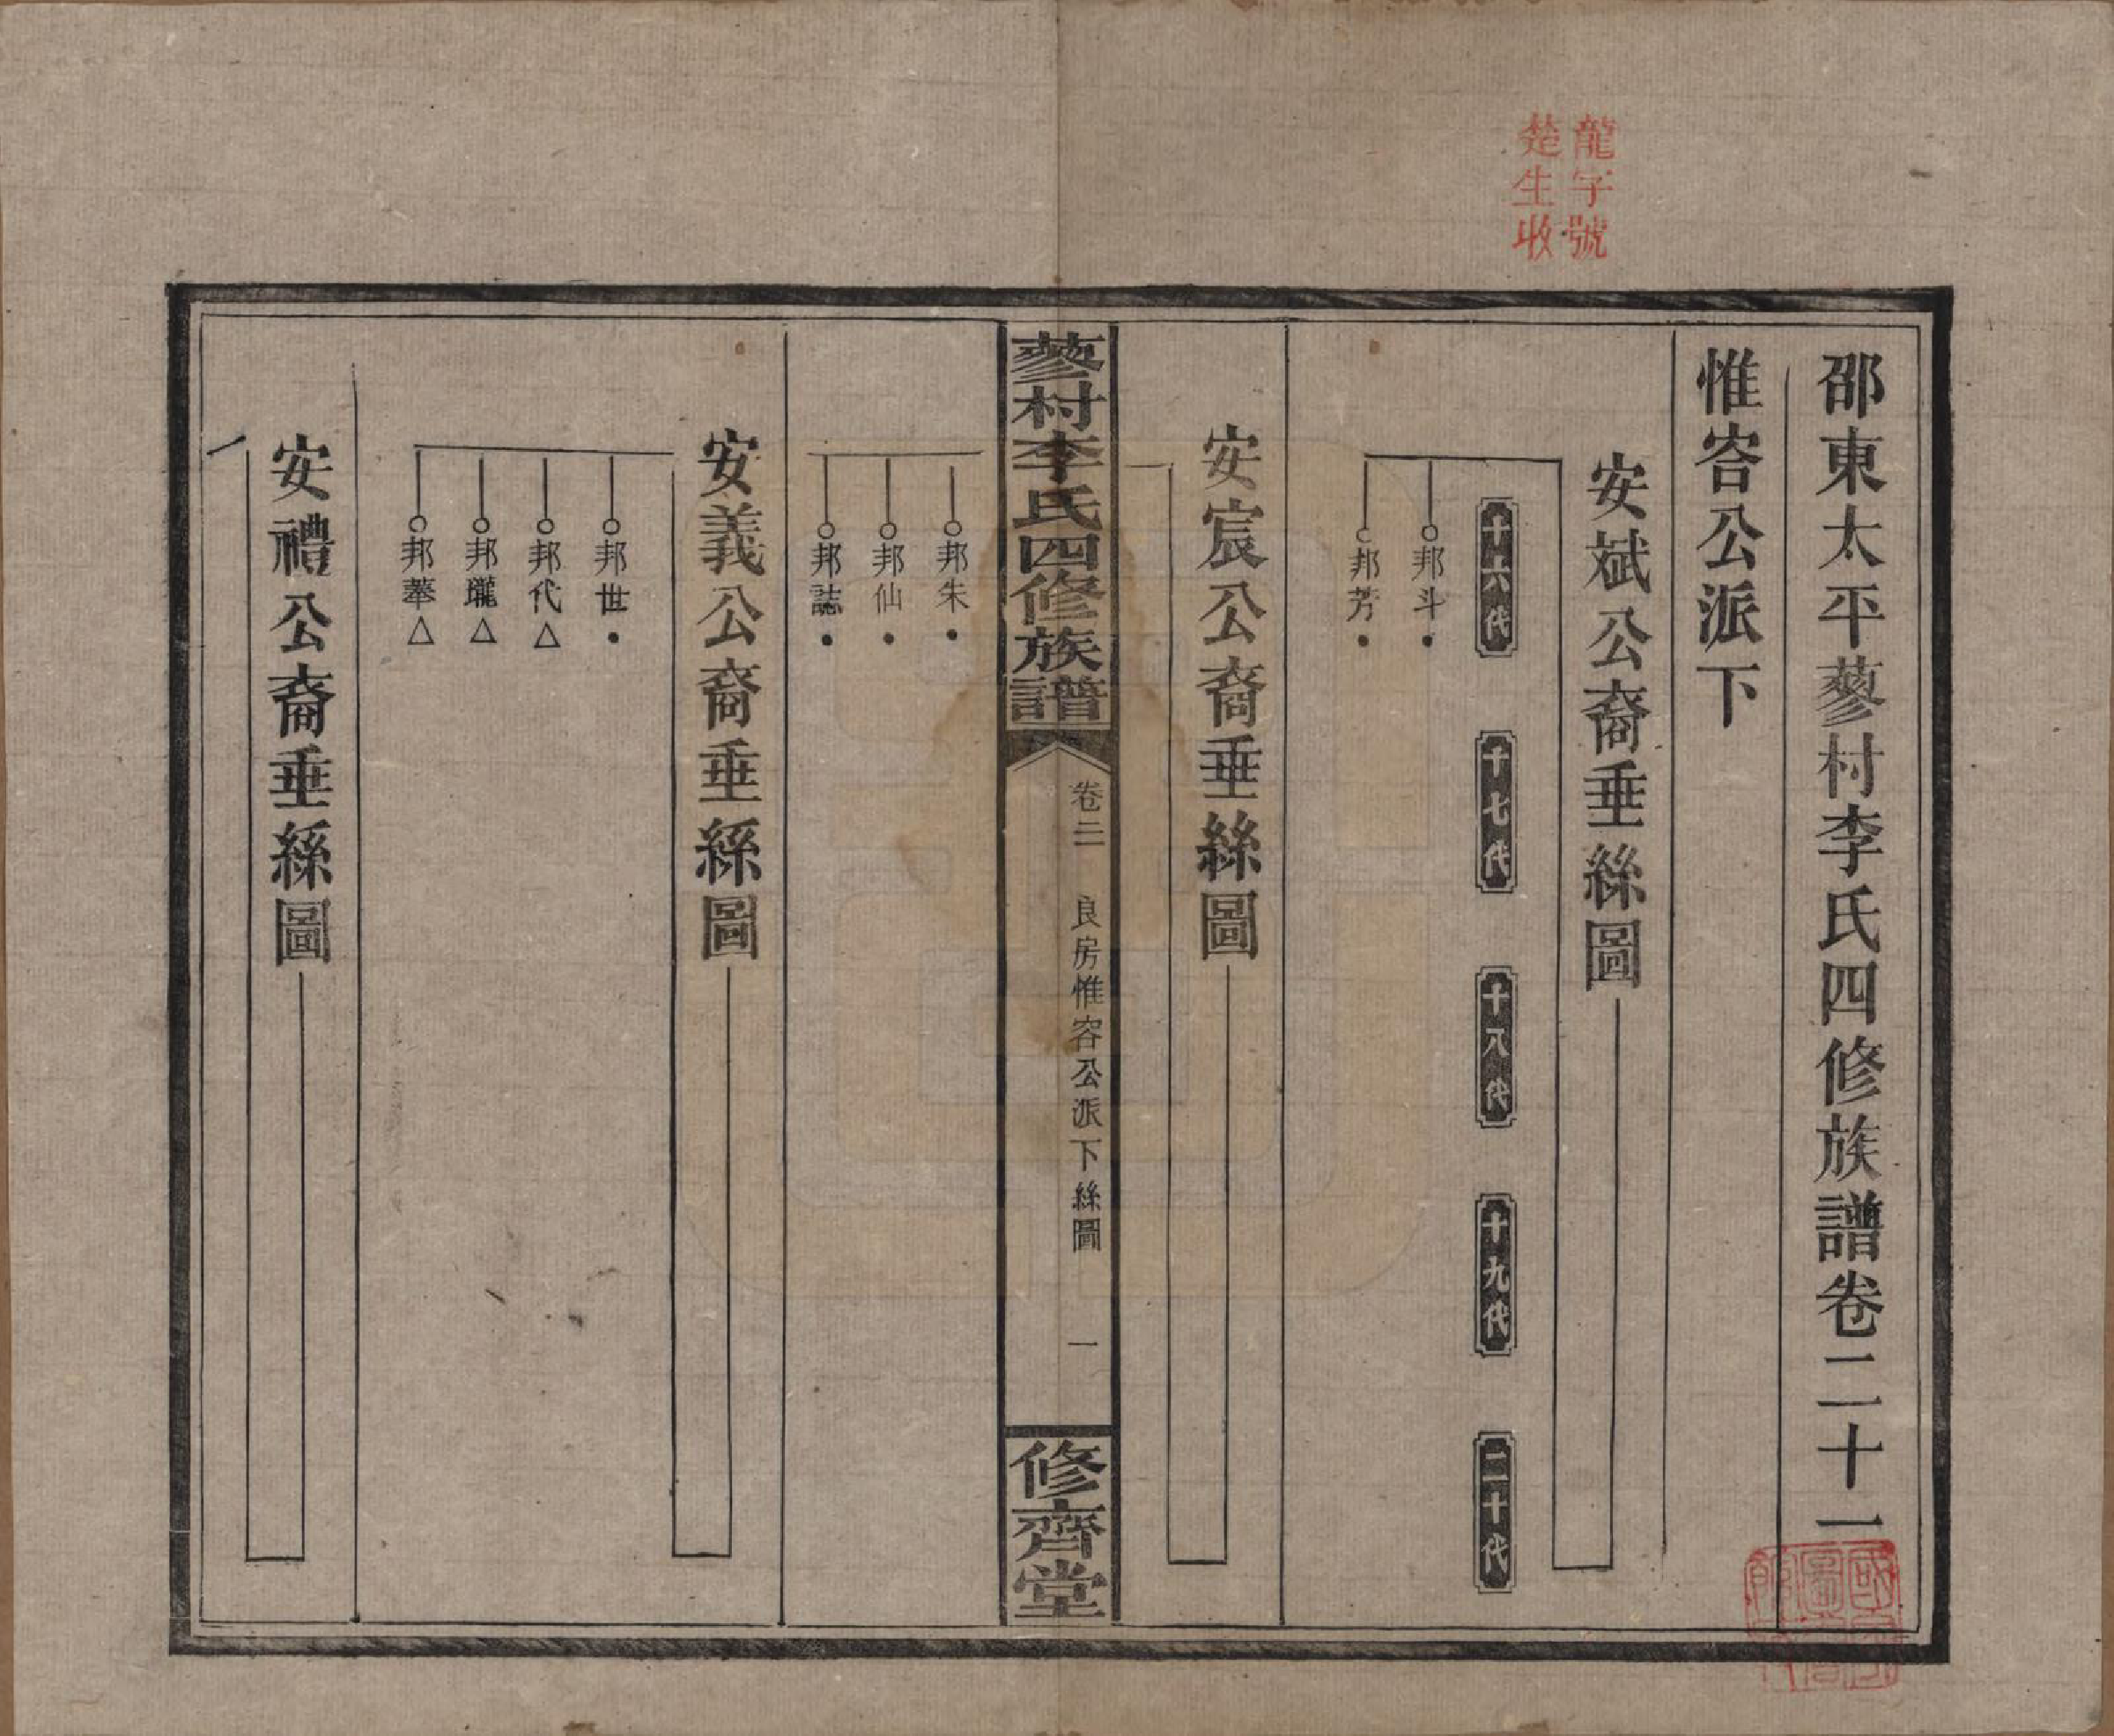 龍字號
楚生收
邵東太平蓼村李氏四修族譜卷二十一
惟容公派下
安斌公裔垂絲圖
十六代
十七代
十八代
十九代
二十代
邦斗
邦芳
安宸公裔垂絲圖
蓼村李氏四修族譜
卷二
良房惟容公派下絲圖
一
修齊堂
邦朱
邦仙
邦誌
安義公裔垂絲圖
邦世
邦代△
邦瓏△
邦△
安禮公裔垂絲圖